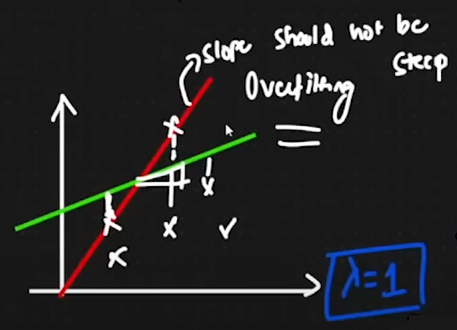 slope should not be
steep
Overfitting
λ=1